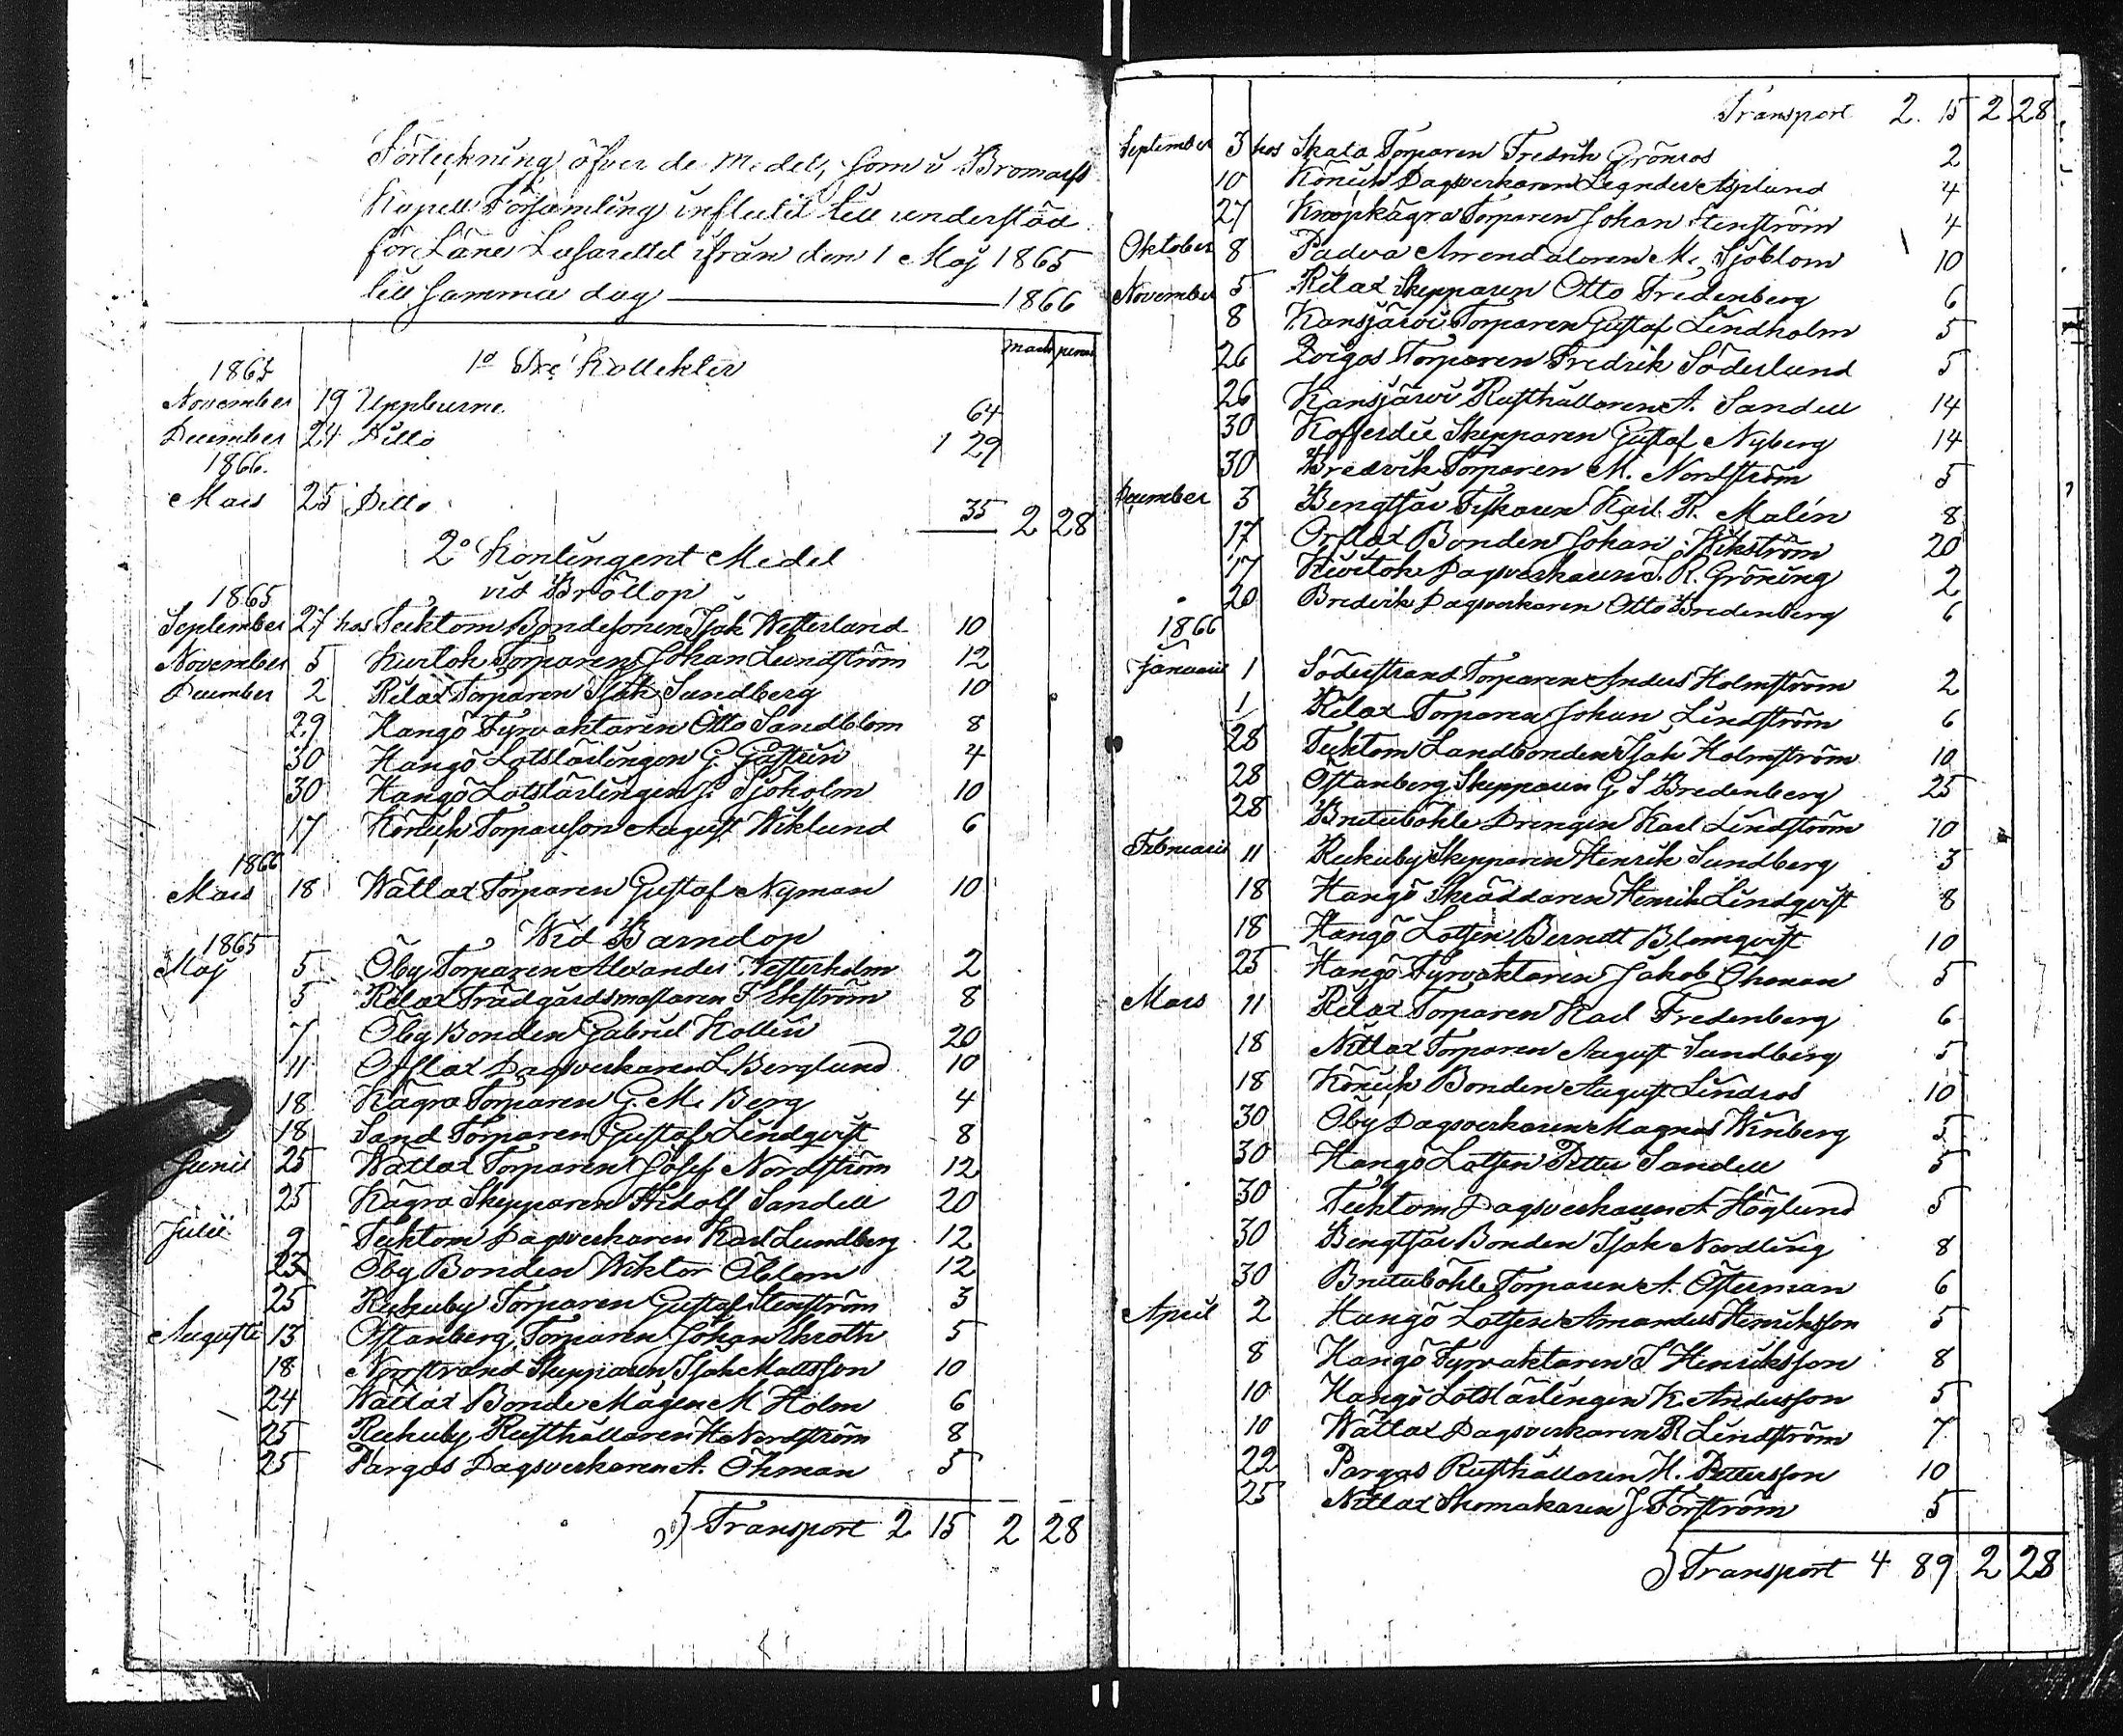 Förteckning öfver de Medel, som i Bromarf
Kapell Församling influtit till understöd
för Läne Lasarettet ifrån den 1 Maj 1865
till samma dag — 1866
mark penni
1865 1º Tre Kollekter
November 19 Uppburne 64
December 24 Ditto 1 29
1866.
Mars 25 Ditto 35 2 28
2º Kontingent Medel
vid Bröllop
1865
September 27 hos Tecktom Bondesonen Isak Westerlund 10
November 5 Torparen Johan Lundström 12
December 2 Rilax Torparen Isak Sundberg 10
29 Hangö Fyrvaktaren Otto Sandblom 8
30 Hangö Lotslärlingen G. 4
30 Hangö Lotslärlingen J. Sjöholm 10
17 Torpareson August Wiklund 6
1866
Mars 18 Wättlax Torparen Gustaf Nyman 10
Wid Barndop
1865
Maj 5 Öby Torparen Alexander Westerholm 2
5 Rilax Trädgårdsmästaren F Ekström 8
7 Öby Bonden Gabriel Kollin 20
11 Orslax Dagsverkaren L. Berglund 10
18 Kågra Torparen G. M. Berg 4
18 Sand Torparen Gustaf Lindqvist 8
Junii 25 Wättlax Torparen Josef Nordström 12
25 Kågra Skepparen Fridolf Sandell 20
Julii 9 Tecktom Dagsverkaren Karl Lundberg 12
23 Öby Bonden Wiktor Öblom 12
25 Torparen Gustaf Stenström 3
Augusti 13 Östanberg Torparen Johan 5
18 Norrstrand Skepparen Isak Mattsson 10
24 Wättlax Bonde Mågen M Holm 6
25 Rusthållaren H Nordström 8
25 Pargas Dagsverkaren A. Öhman 5
Transport 2 15 2 28
Transport 2. 15 2 28
September 3 hos Skata Torparen Fredrik Grönroos 2
10 Dagsverkaren Asplund 4
27 Knopkägra Torparen Johan Stenström 4
Oktober 8 Padva Arrendatoren M. Sjöblom 10
November 5 Rilax Skepparen Otto Fredenberg 6
8 Kansjärvi Torparen Gustaf Lindholm 5
26 Torparen Fredrik Söderlund 5
26 Kansjärvi Rusthållaren A. Sandell 14
30 Kofferdie Skepparen Gustaf Nyberg 14
30 Bredvik Torparen M. Nordström 5
December 3 Bengtsår Fiskaren Karl R. Malin 8
17 Orslax Bonden Johan Wikström 20
17 Dagsverkaren J. R. Gröning 2
20 Bredvik Dagsverkaren Otto Bredenberg 6
1866
Januarii 1 Söderstrand Torparen Anders Holmström 2
1 Rilax Torparen Johan Lindström 6
28 Tecktom Landbonden Isak Holmström 10
28 Östanberg Skepparen G. S Bredenberg 25
28 Bruteböhle Drengen Karl Lindström 10
Februarii 11 Skepparen Henrik Sundberg 3
18 Hangö Skräddaren Henrik Lindqvist 8
18 Hangö Lotsen Berndt Blomqvist 10
25 Hangö Fyrvaktaren Jakob Öhman 5
Mars 11 Rilax Torparen Karl Fredenberg 6
18 Nitlax Torparen August Sundberg 5
18 Bonden August Lindroos 10
30 Öby Dagsverkaren Magnus Winberg 5
30 Hangö Lotsen Petter Sandell 5
30 Tecktom Dagsverkaren A Höglund 5
30 Bengtsår Bonden Isak Nordling 8
30 Bruteböhle Torparen A. Österman 6
April 2 Hangö Lotsen Amandus Henriksson 5
8 Hangö Fyrvaktaren J Henriksson 8
10 Hangö Lotslärlingen K. Andersson 5
10 Wättlax Dagsverkaren R Lindström 7
22 Pargas Rusthållaren H. Pettersson 10
25 Nitlax Skomakaren J Forström 5
Transport 4 89 2 28